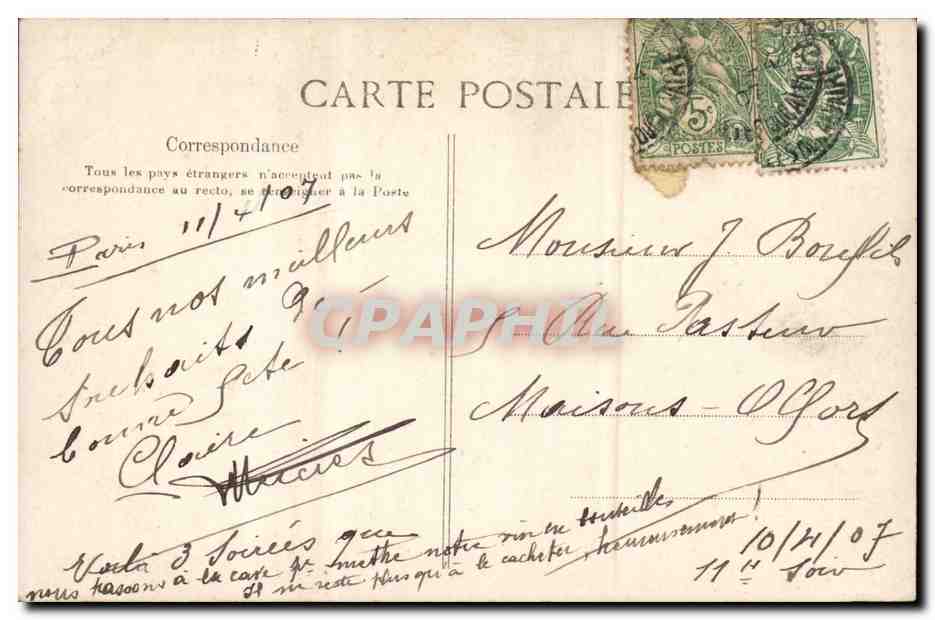 CARTE POSTALE
Correspondance
Tous les pays étrangers n'acceptent pas la
correspondance au recto, se renseigner à la Poste
5c
POSTES
Paris 11/4/07
Tous nos meilleurs
souhaits de
bonne fête !
Claire
Monsieur J. Bonfils
8 Rue Pasteur
Maisons-Alfort
Voilà 3 soirées que
nous passons à la cave pr mettre notre vin en bouteilles
Il ne reste plus qu'à le cacheter, heureusement !
10/4/07
11 H soir
CPAPHIL